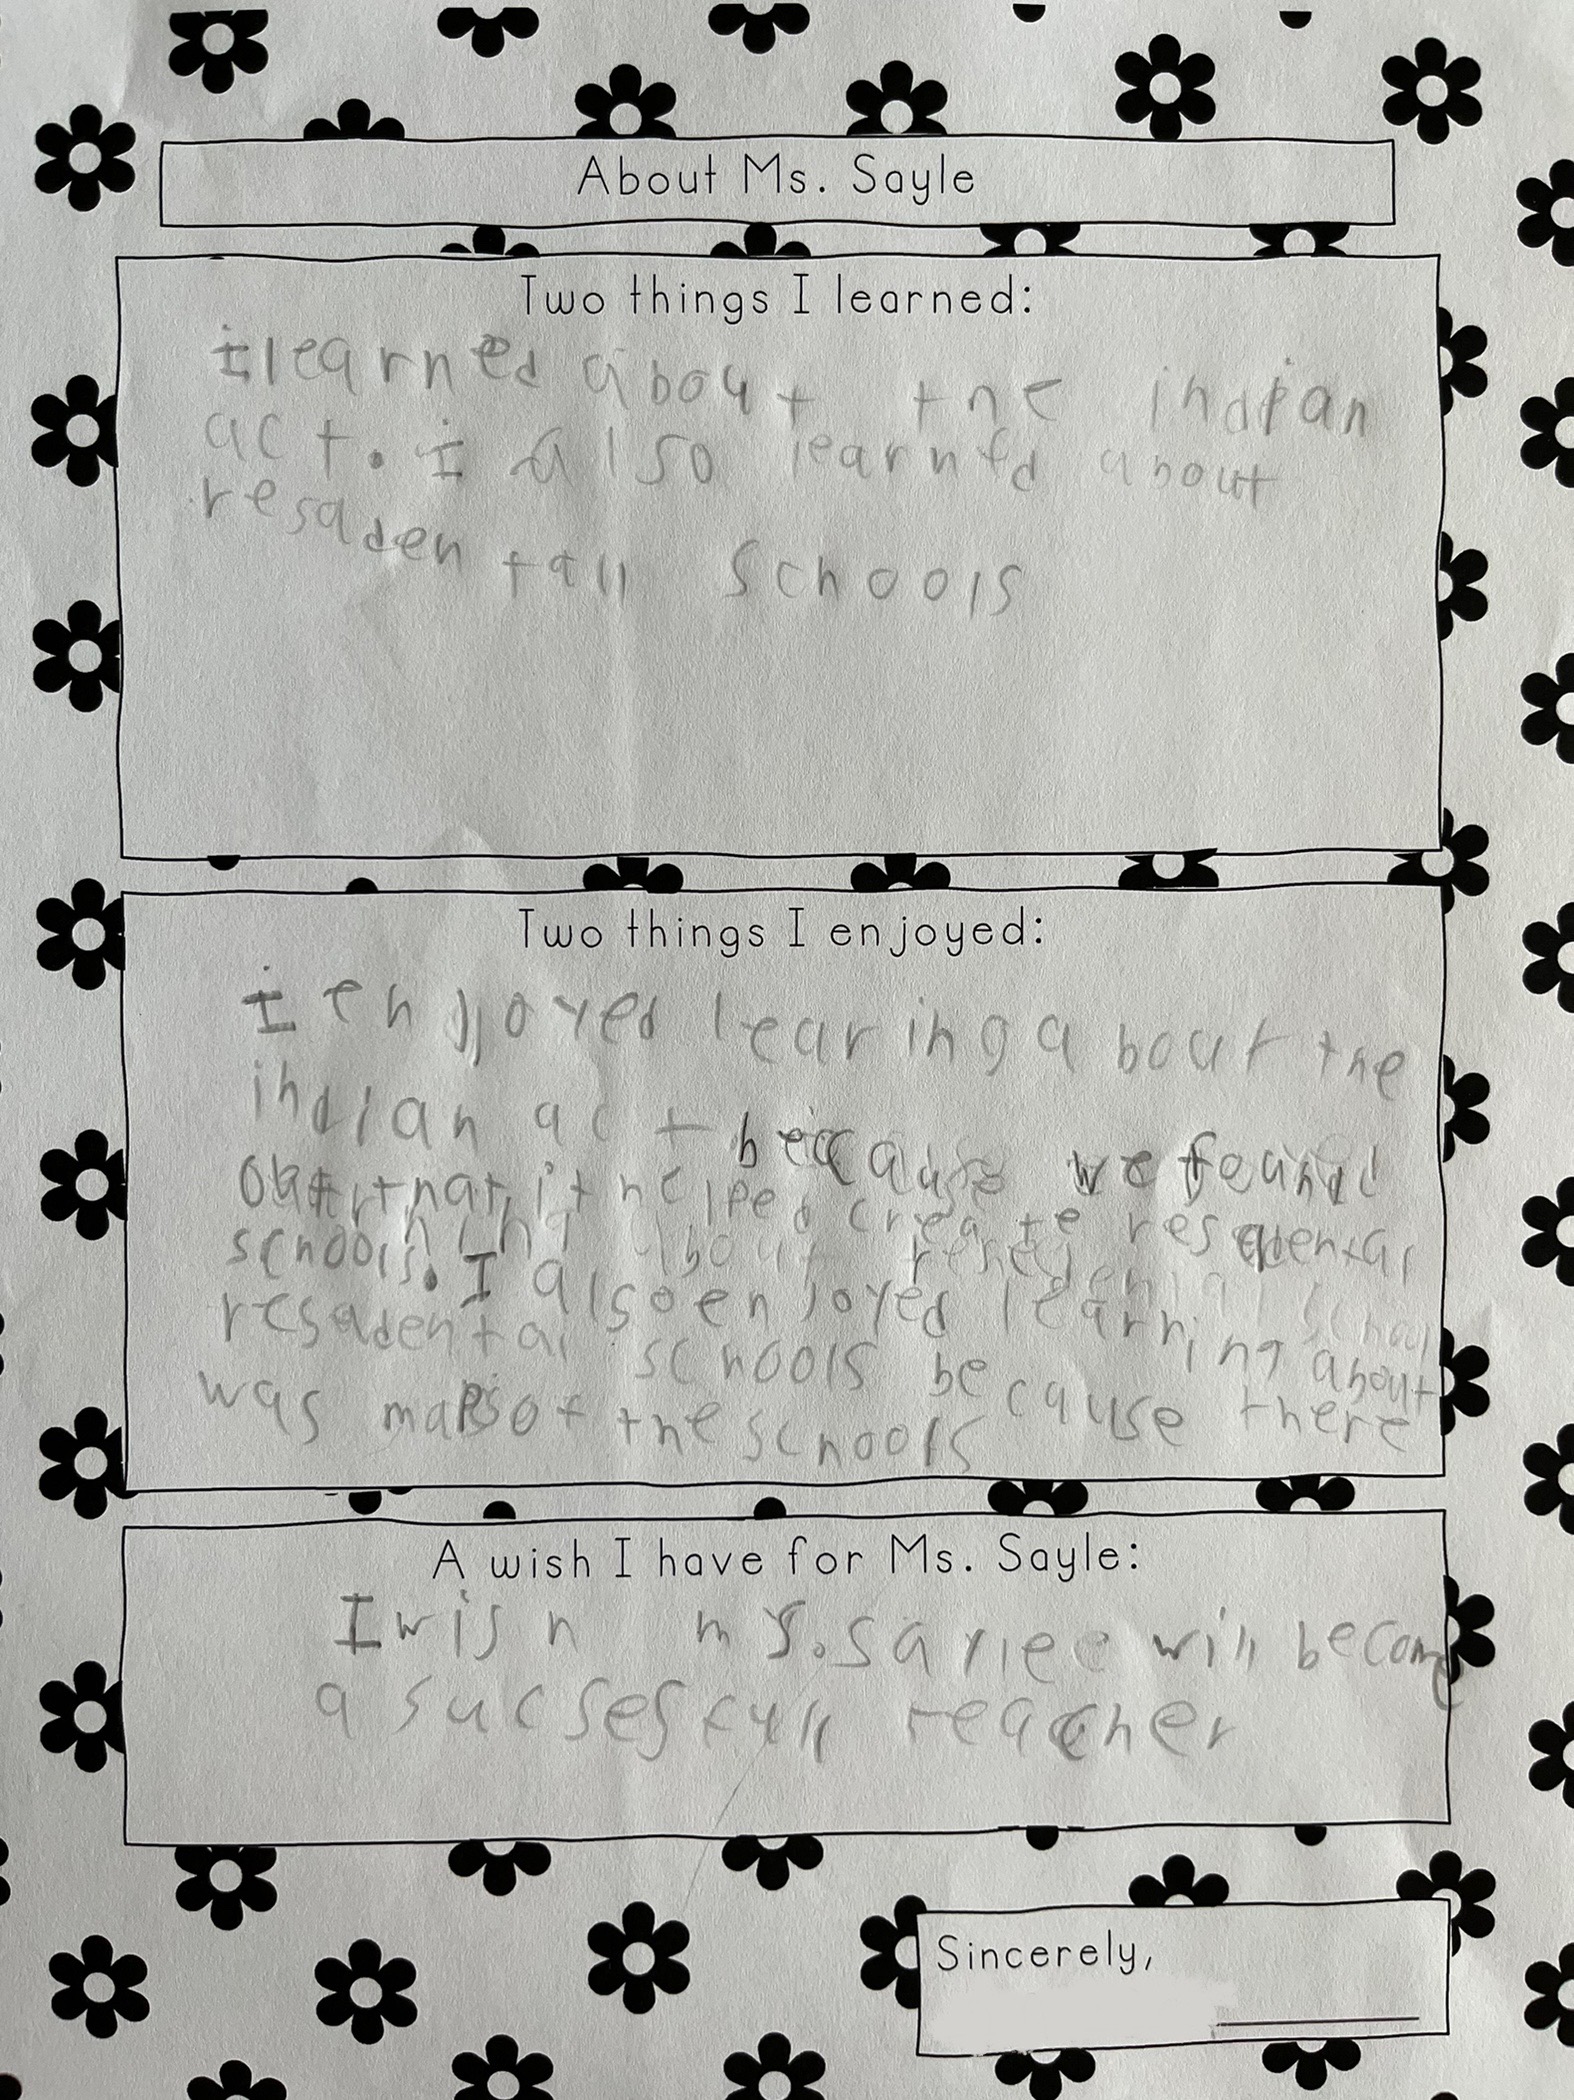 About Ms. Sayle
Two things I learned:
I learned about the indian
act. I also learned about
resadentall schools
Two things I enjoyed:
I enjoyed learing about the
indian act because we found
out that it helped create resedental
schools. I also enjoyed learning about
resadental schools because there
was maps of the schools
A wish I have for Ms. Sayle:
I wish ms. saylee will become
a sucsesfull teacher
Sincerely,